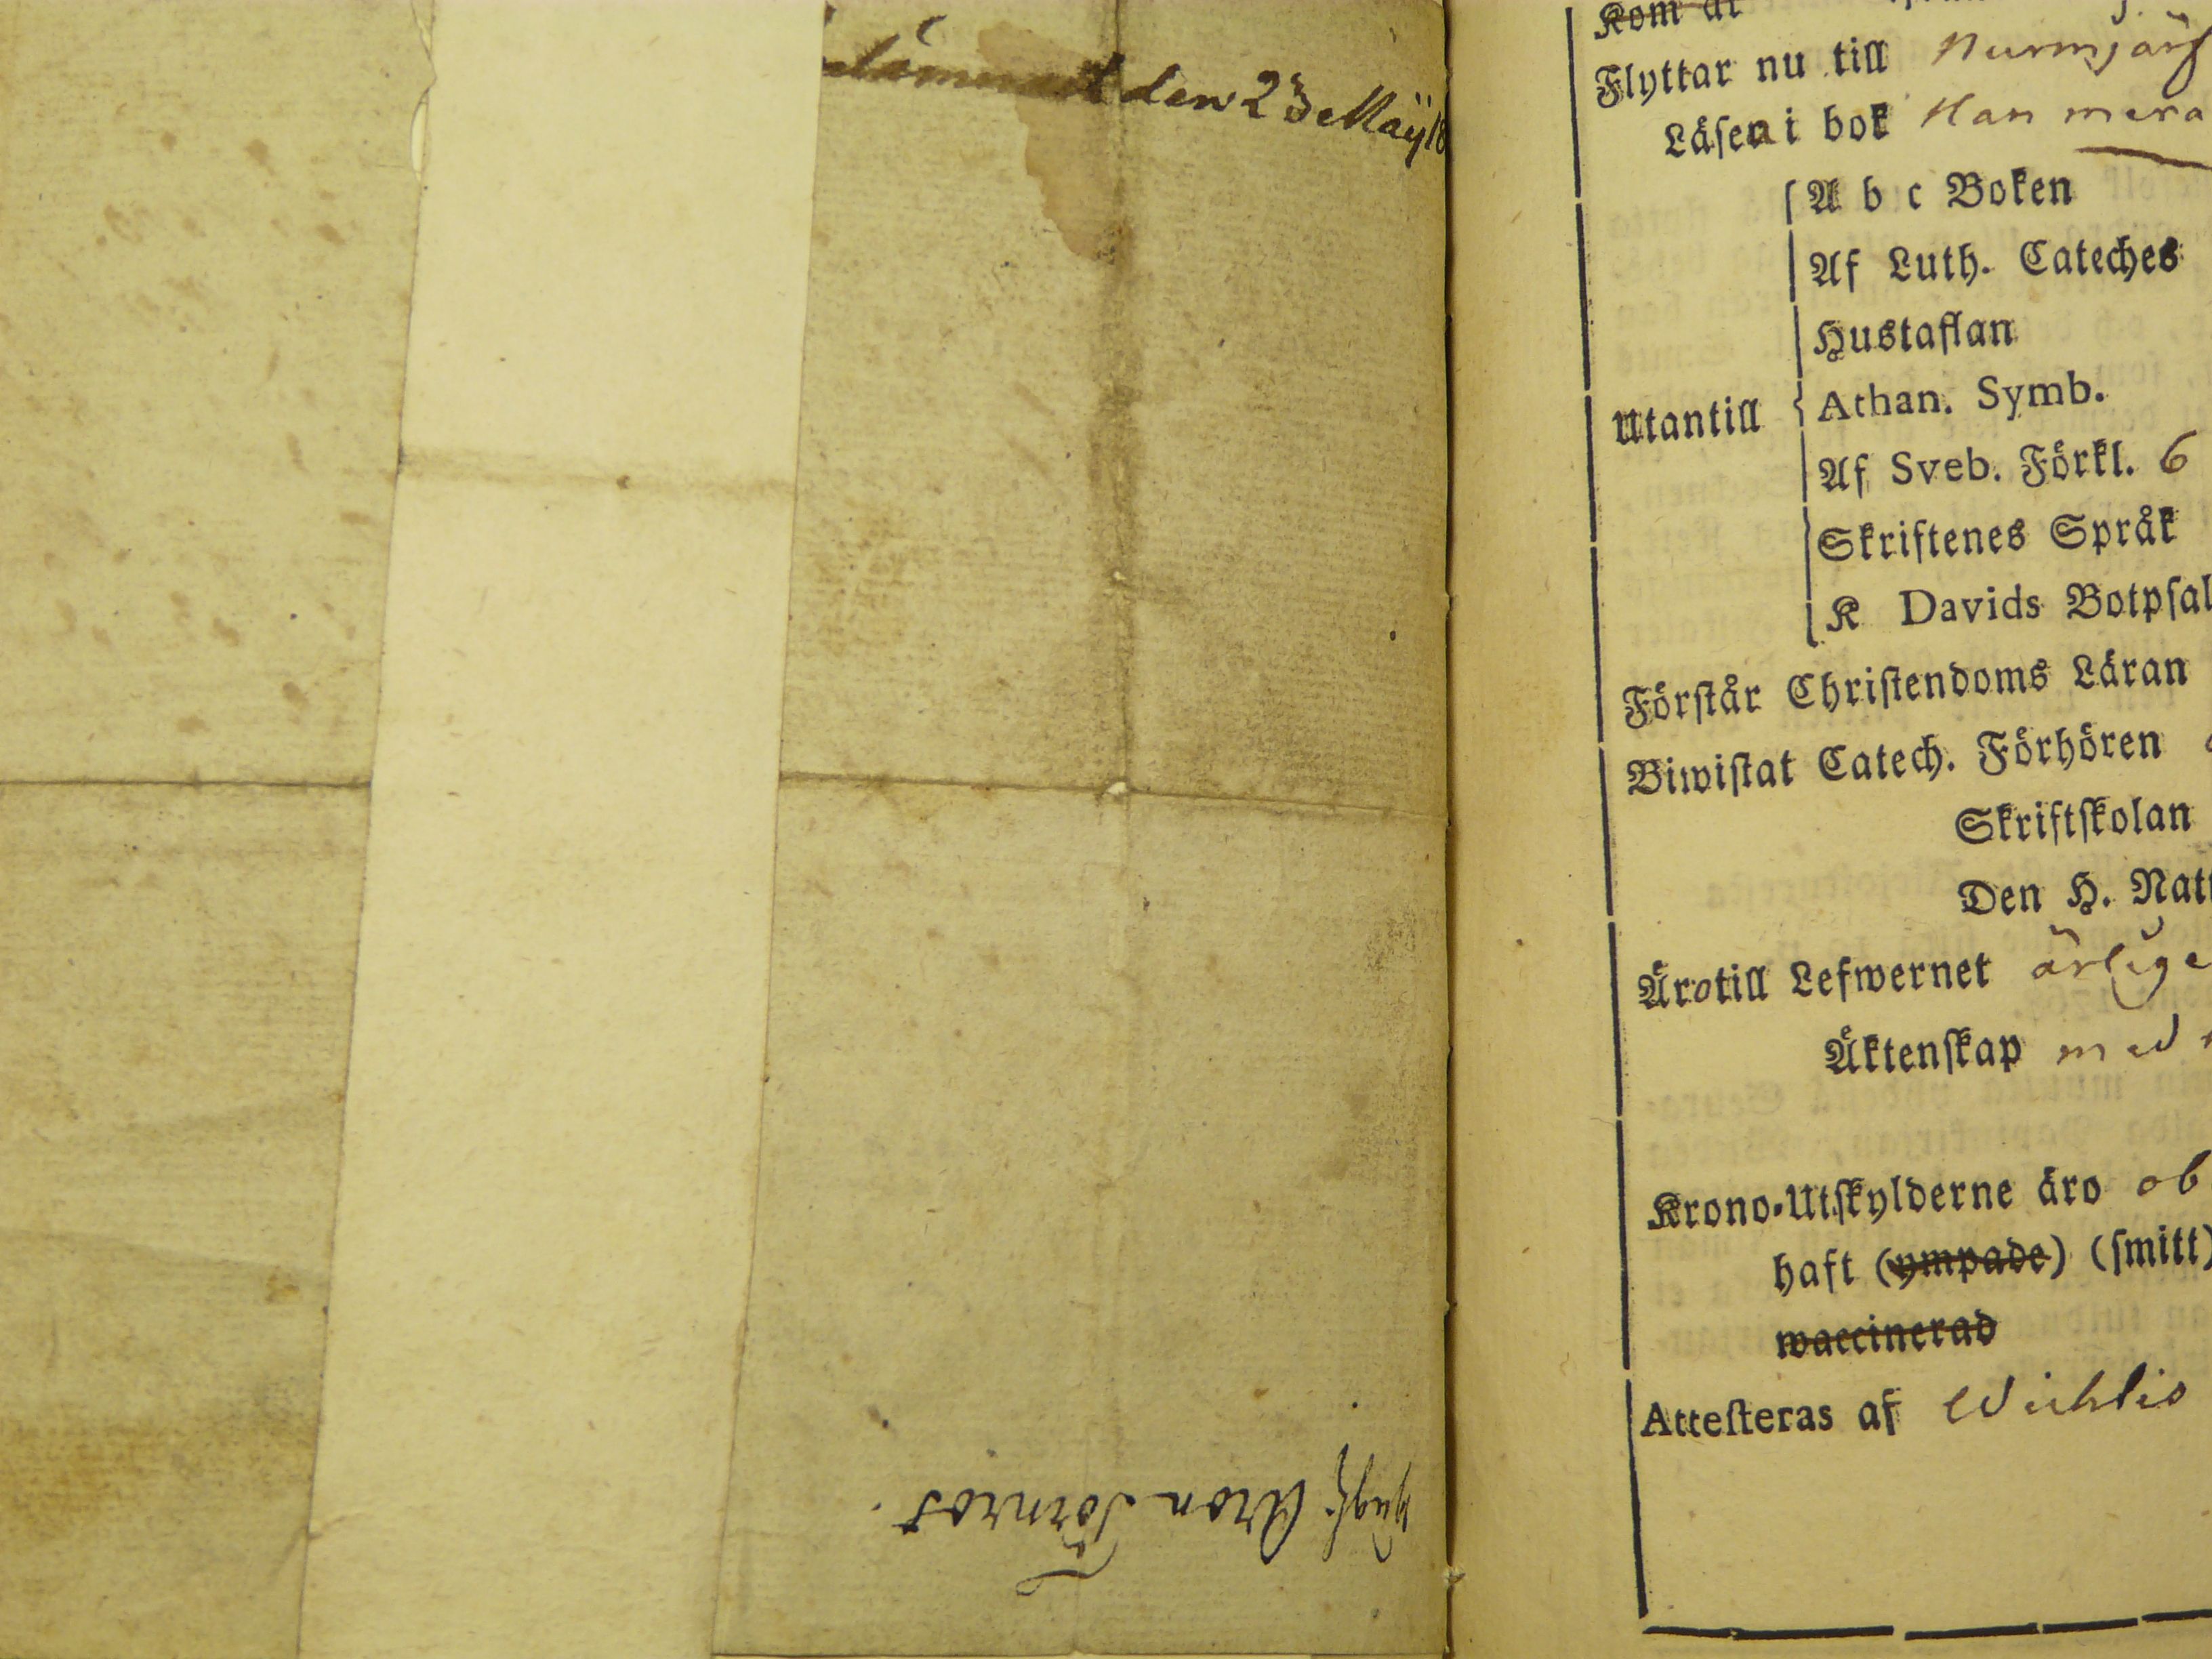 den 23 Maij 18
Aron Törnros.
Kom år
Flyttar nu till Nurmijärf
Läsea i bok Han mera
A b c Boken
Af Luth. Cateches
Hustaflan
Utantill Athan. Symb.
Af Sveb. Förkl. 6
Skriftenes Språk
K Davids Botpsal
Förstår Christendoms Läran
Biwistat Catech. Förhören
Skriftskolan
Den H. Natt
Äro till Lefwernet ärlige
Äktenskap med
Krono-Utskylderne äro ob
haft (ympade) (smitt)
waccinerad
Attesteras af Wichtis